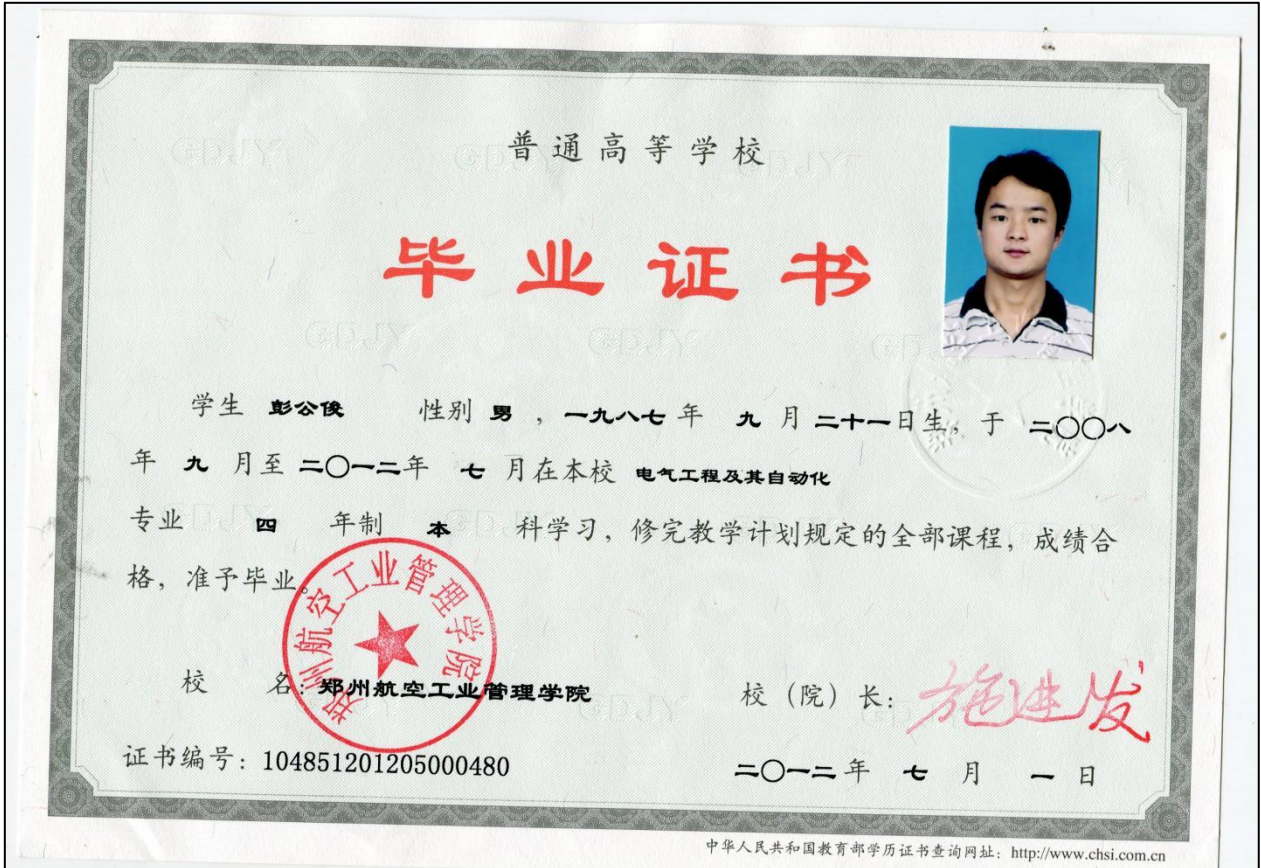 普通高等学校
毕业证书
学生 彭公俊 性别 男 ，一九八七 年 九 月 二十一日生，于 二〇〇八
年 九 月至 二〇一二年 七 月在本校 电气工程及其自动化
专业 四 年制 本 科学习，修完教学计划规定的全部课程，成绩合
格，准予毕业。
郑州航空工业管理学院
校 名：郑州航空工业管理学院 校（院）长：施进发
证书编号：104851201205000480 二〇一二年 七 月 一 日
中华人民共和国教育部学历证书查询网址：http://www.chsi.com.cn